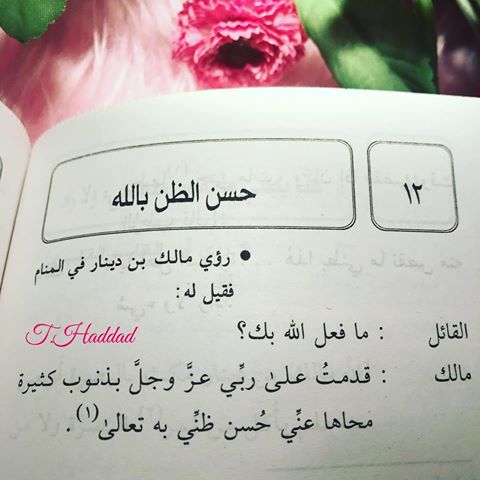 ١٢
حسن الظن بالله
• رؤي مالك بن دينار في المنام
فقيل له :
القائل : ما فعل الله بك؟
T.Haddad
مالك : قدمتُ على ربِّي عزَّ وجلَّ بذنوب كثيرة
محاها عنِّي حُسن ظنِّي به تعالى(١) .